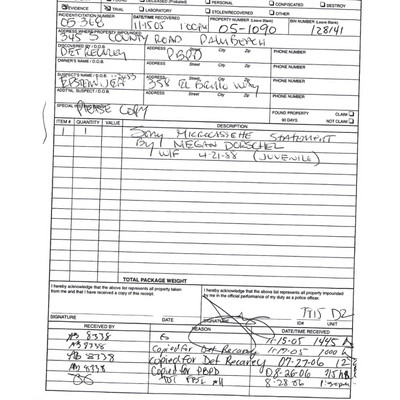 FOUND DECEASED (Probated) PERSONAL DESTROY
EVIDENCE TRIAL LABORATORY STOLEN/RECOVERED CONFISCATED OTHER
INCIDENT/CITATION NUMBER DATE/TIME RECOVERED PROPERTY NUMBER (Leave Blank) BIN NUMBER (Leave Blank)
05-368 11/15/05 05-1090 128141
ADDRESS WHERE PROPERTY IMPOUNDED
345 S COUNTY ROAD PALM BEACH
DISCOVERED BY / D.O.B. ADDRESS Street City Zip PHONE NUMBER
DET RECAREY PBPD
OWNER'S NAME / D.O.B. ADDRESS Street City Zip PHONE NUMBER
SUSPECT'S NAME / D.O.B. ADDRESS Street City Zip PHONE NUMBER
358 El Brillo Way
ADDTNL. SUSPECT / D.O.B. ADDRESS Street City Zip PHONE NUMBER
SPECIAL PLEASE COPY FOUND PROPERTY CLAIM
90 DAYS NOT CLAIM
ITEM # QUANTITY VALUE DESCRIPTION
1 1 Sony MICROCASSETTE STATEMENT
By MEGAN
W/F 4-21-88 (JUVENILE)
TOTAL PACKAGE WEIGHT
I hereby acknowledge that the above list represents all property taken from me and that I have received a copy of this receipt.
I hereby acknowledge that the above list represents all property impounded by me in the official performance of my duty as a police officer.
SIGNATURE SIGNATURE ID# UNIT
RECEIVED BY DATE REASON DATE/TIME RECEIVED
8338 11-15-05 1445
8338 Copied for Det Recarey 11-15-05 1000
8338 Copied for Det Recarey 07-27-06
8338 Copied for PBPD 08-26-06
8-28-06